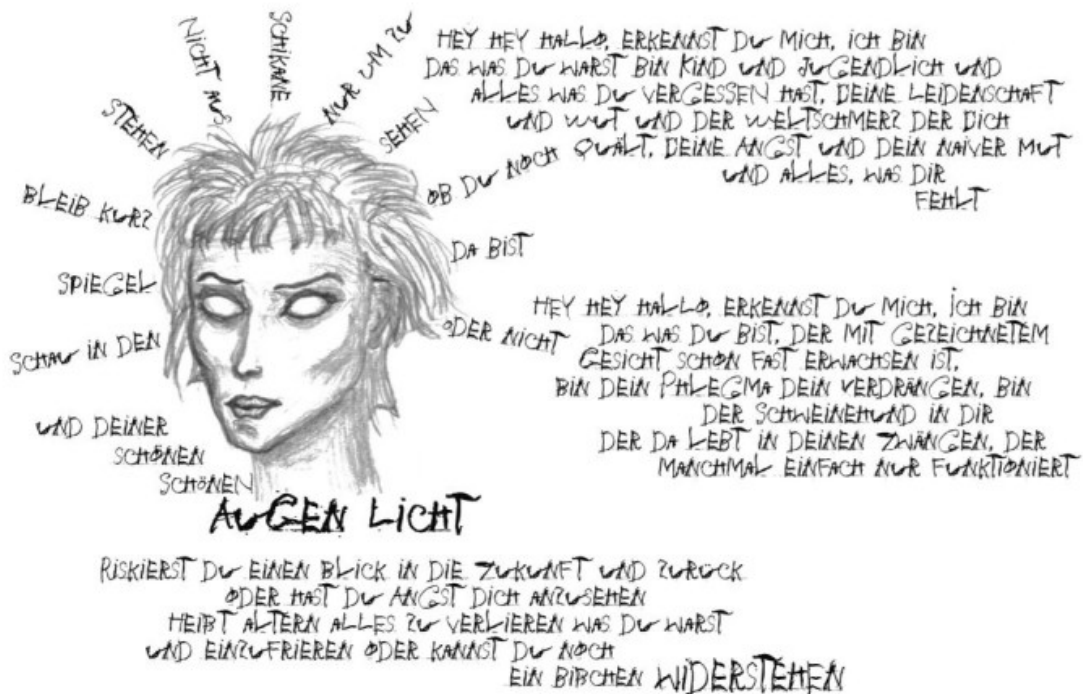 SCHAU IN DEN
SPIEGEL
BLEIB KURZ
STEHEN
NICHT AUS
SCHIKANE
NUR UM ZU
SEHEN
OB DU NOCH
DA BIST
ODER NICHT
UND DEINER
SCHÖNEN
SCHÖNEN
AUGEN LICHT
HEY HEY HALLO, ERKENNST DU MICH, ICH BIN
DAS WAS DU WARST BIN KIND UND JUGENDLICH UND
ALLES WAS DU VERGESSEN HAST, DEINE LEIDENSCHAFT
UND WUT UND DER WELTSCHMERZ DER DICH
QUÄLT, DEINE ANGST UND DEIN NAIVER MUT
UND ALLES, WAS DIR
FEHLT
HEY HEY HALLO, ERKENNST DU MICH, ICH BIN
DAS WAS DU BIST, DER MIT GEZEICHNETEM
GESICHT SCHON FAST ERWACHSEN IST,
BIN DEIN PHLEGMA DEIN VERDRÄNGEN, BIN
DER SCHWEINEHUND IN DIR
DER DA LEBT IN DEINEN ZWÄNGEN, DER
MANCHMAL EINFACH NUR FUNKTIONIERT
RISKIERST DU EINEN BLICK IN DIE ZUKUNFT UND ZURÜCK
ODER HAST DU ANGST DICH ANZUSEHEN
HEIßT ALTERN ALLES ZU VERLIEREN WAS DU WARST
UND EINZUFRIEREN ODER KANNST DU NOCH
EIN BIßCHEN WIDERSTEHEN